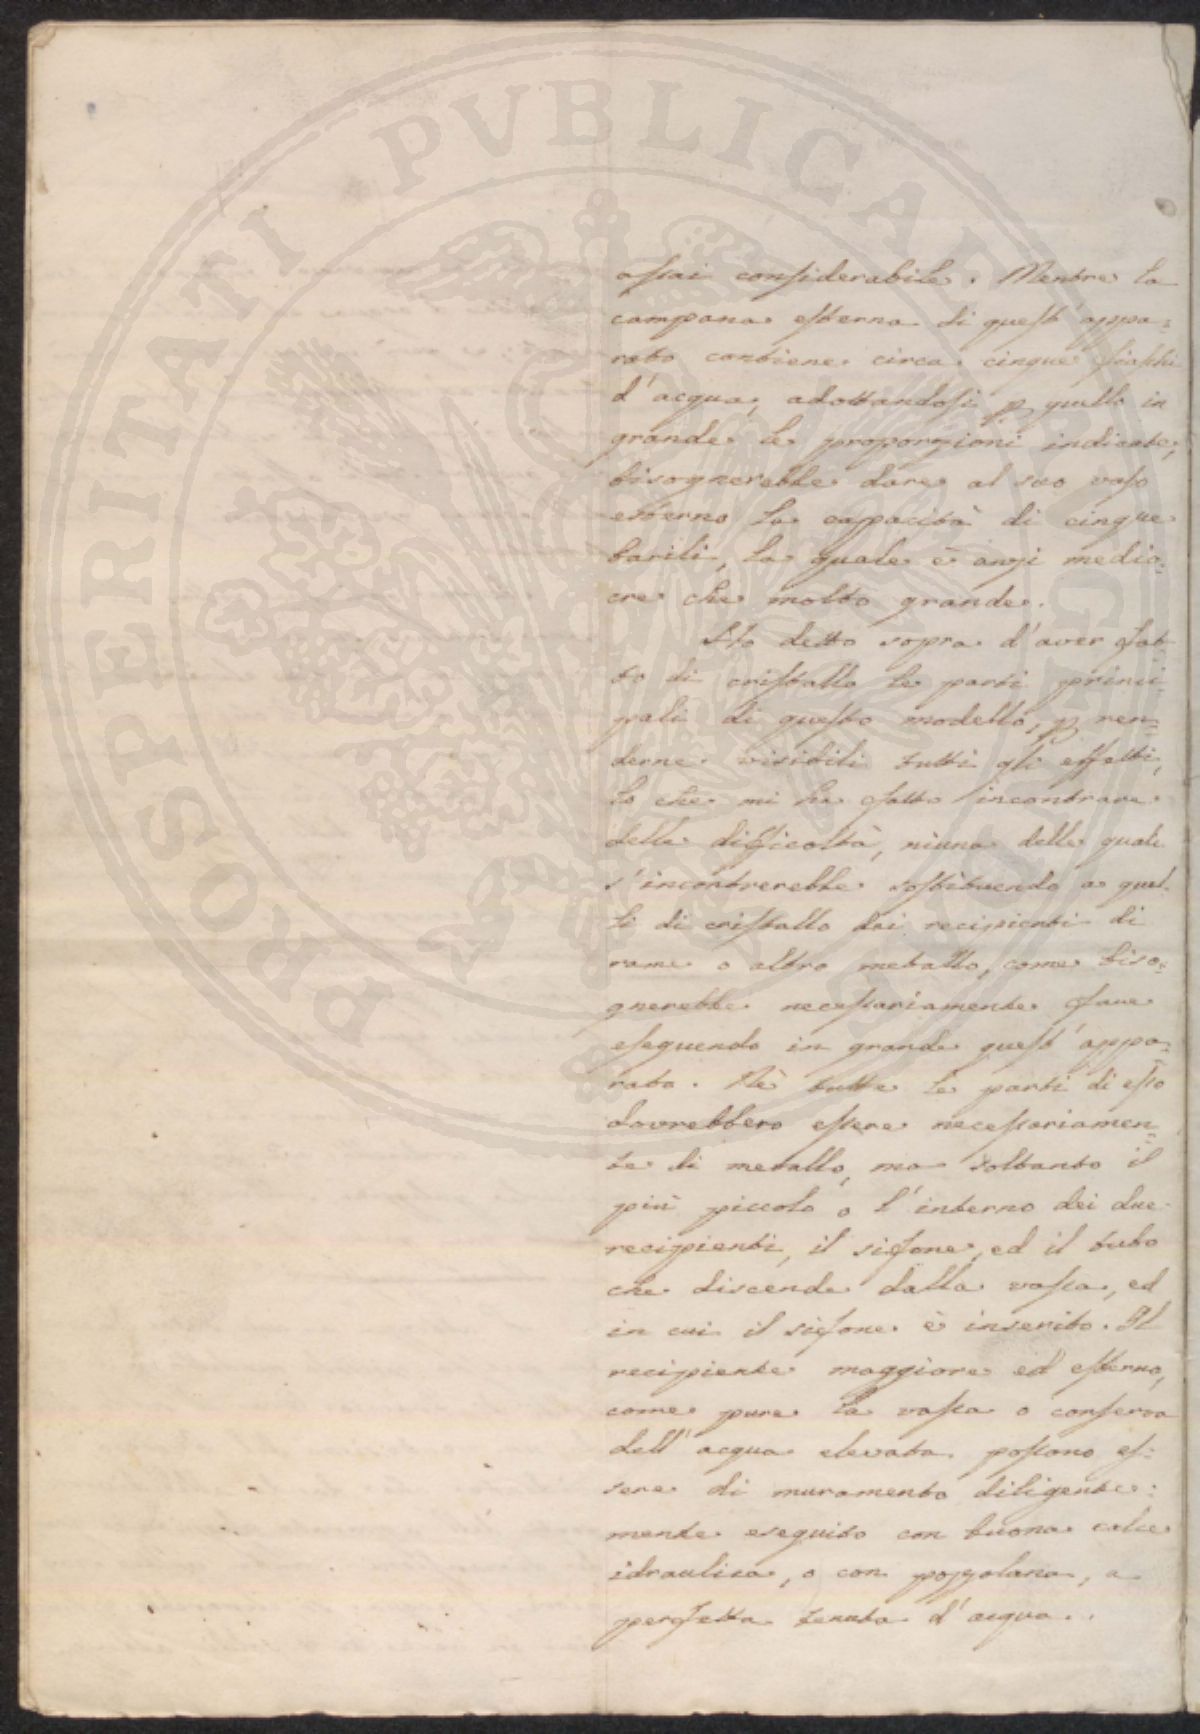 assai considerabile. Mentre la
campana esterna di quest'appa-
rato contiene circa cinque fiaschi
d'acqua, adottandosi p quello in
grande le proporzioni indicate,
bisognerebbe dare al suo vaso
esterno la capacità di cinque
barili, la quale è anzi medio-
cre che molto grande.
Ho detto sopra d'aver fat-
to di cristallo le parti princi-
pali di questo modello, p ren-
derne visibili tutti gli effetti,
lo che mi ha fatto incontrare
delle difficoltà, niuna delle quali
s'incontrerebbe sostituendo a quel-
li di cristallo dei recipienti di
rame o altro metallo, come biso-
gnerebbe necessariamente fare
eseguendo in grande quest'appa-
rato. Nè tutte le parti di esso
dovrebbero essere necessariamen-
te di metallo, ma soltanto il
più piccolo o l'interno dei due
recipienti, il sifone, ed il tubo
che discende dalla vasca, ed
in cui il sifone è inserito. Il
recipiente maggiore ed esterno,
come pure la vasca o conserva
dell'acqua elevata possono es-
sere di muramento diligente-
mente eseguito con buona calce
idraulica, o con pozzolana, a
perfetta tenuta d'acqua..
PROSPERITATI PVBLICAE